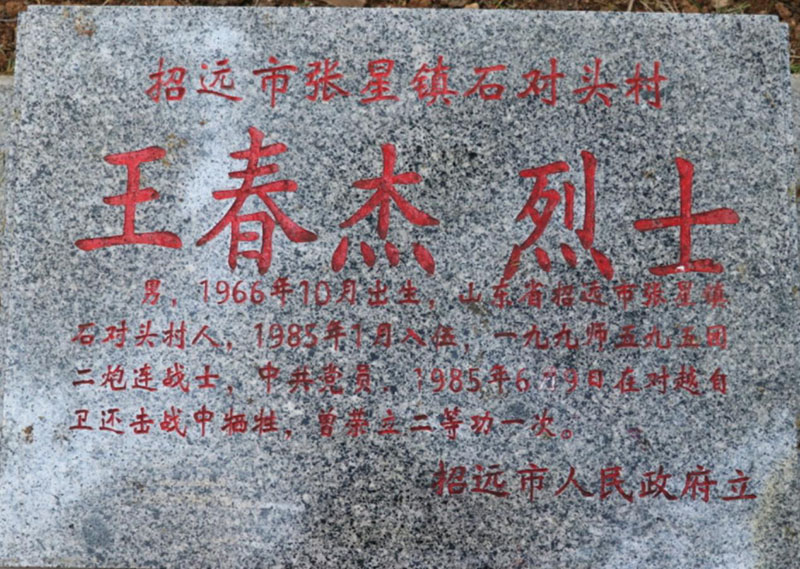 招远市张星镇石对头村
王春杰 烈士
男，1966年10月出生，山东省招远市张星镇
石对头村人，1985年1月入伍，一九九师五九五团
二炮连战士，中共党员，1985年6月9日在对越自
卫还击战中牺牲，曾荣立二等功一次。
招远市人民政府立